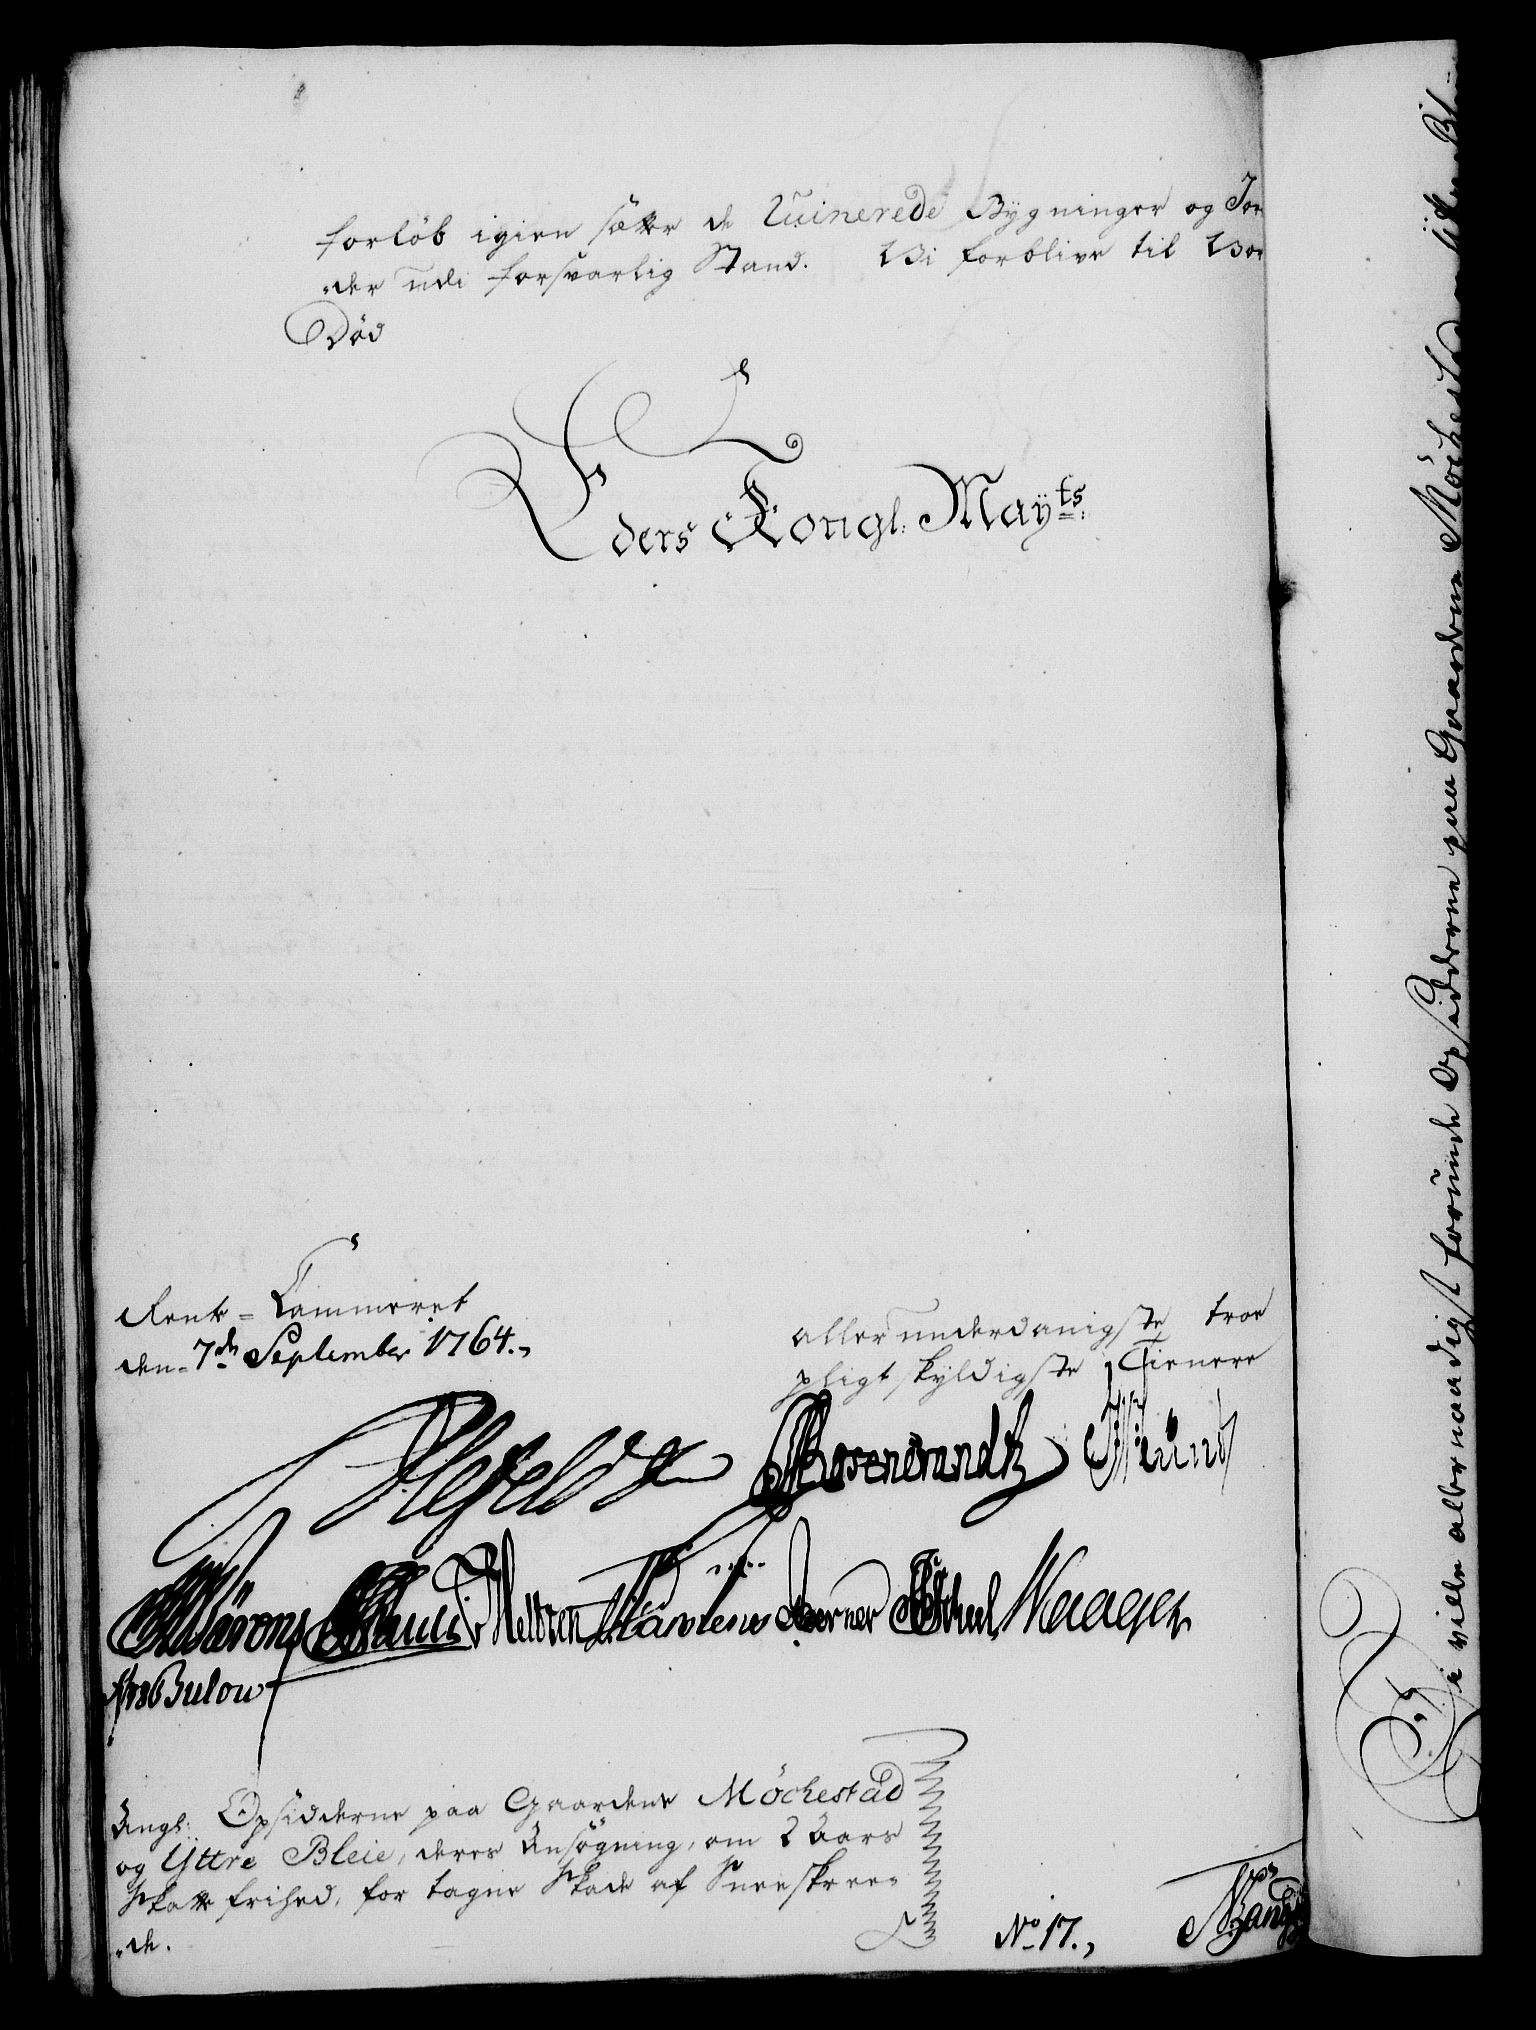 forløb igien sætte de Ruinerede Bygninger og Jor
„der udi forsvarlig Stand. Vi forblive til Vor
Død
Eders Kongl: Mayts:
Rente-Cammeret
den 7de September 1764.,
allerunderdanigste troe
pligtskyldigste Tienere
Holsteen
Rosencrandtz
Wærens
Hansen
Berner
Waage
Bulow
Angl: Opsidderne paa Gaardene Møchestad
og Yttre Bleie, deres Ansøgning, om 2 Aars
Skatte frihed, for tagne Skade af Sneeskree-
„de.
No 17.,
Vi ville allernaadigst forunde Opsidderne paa Gaardene Møchestad